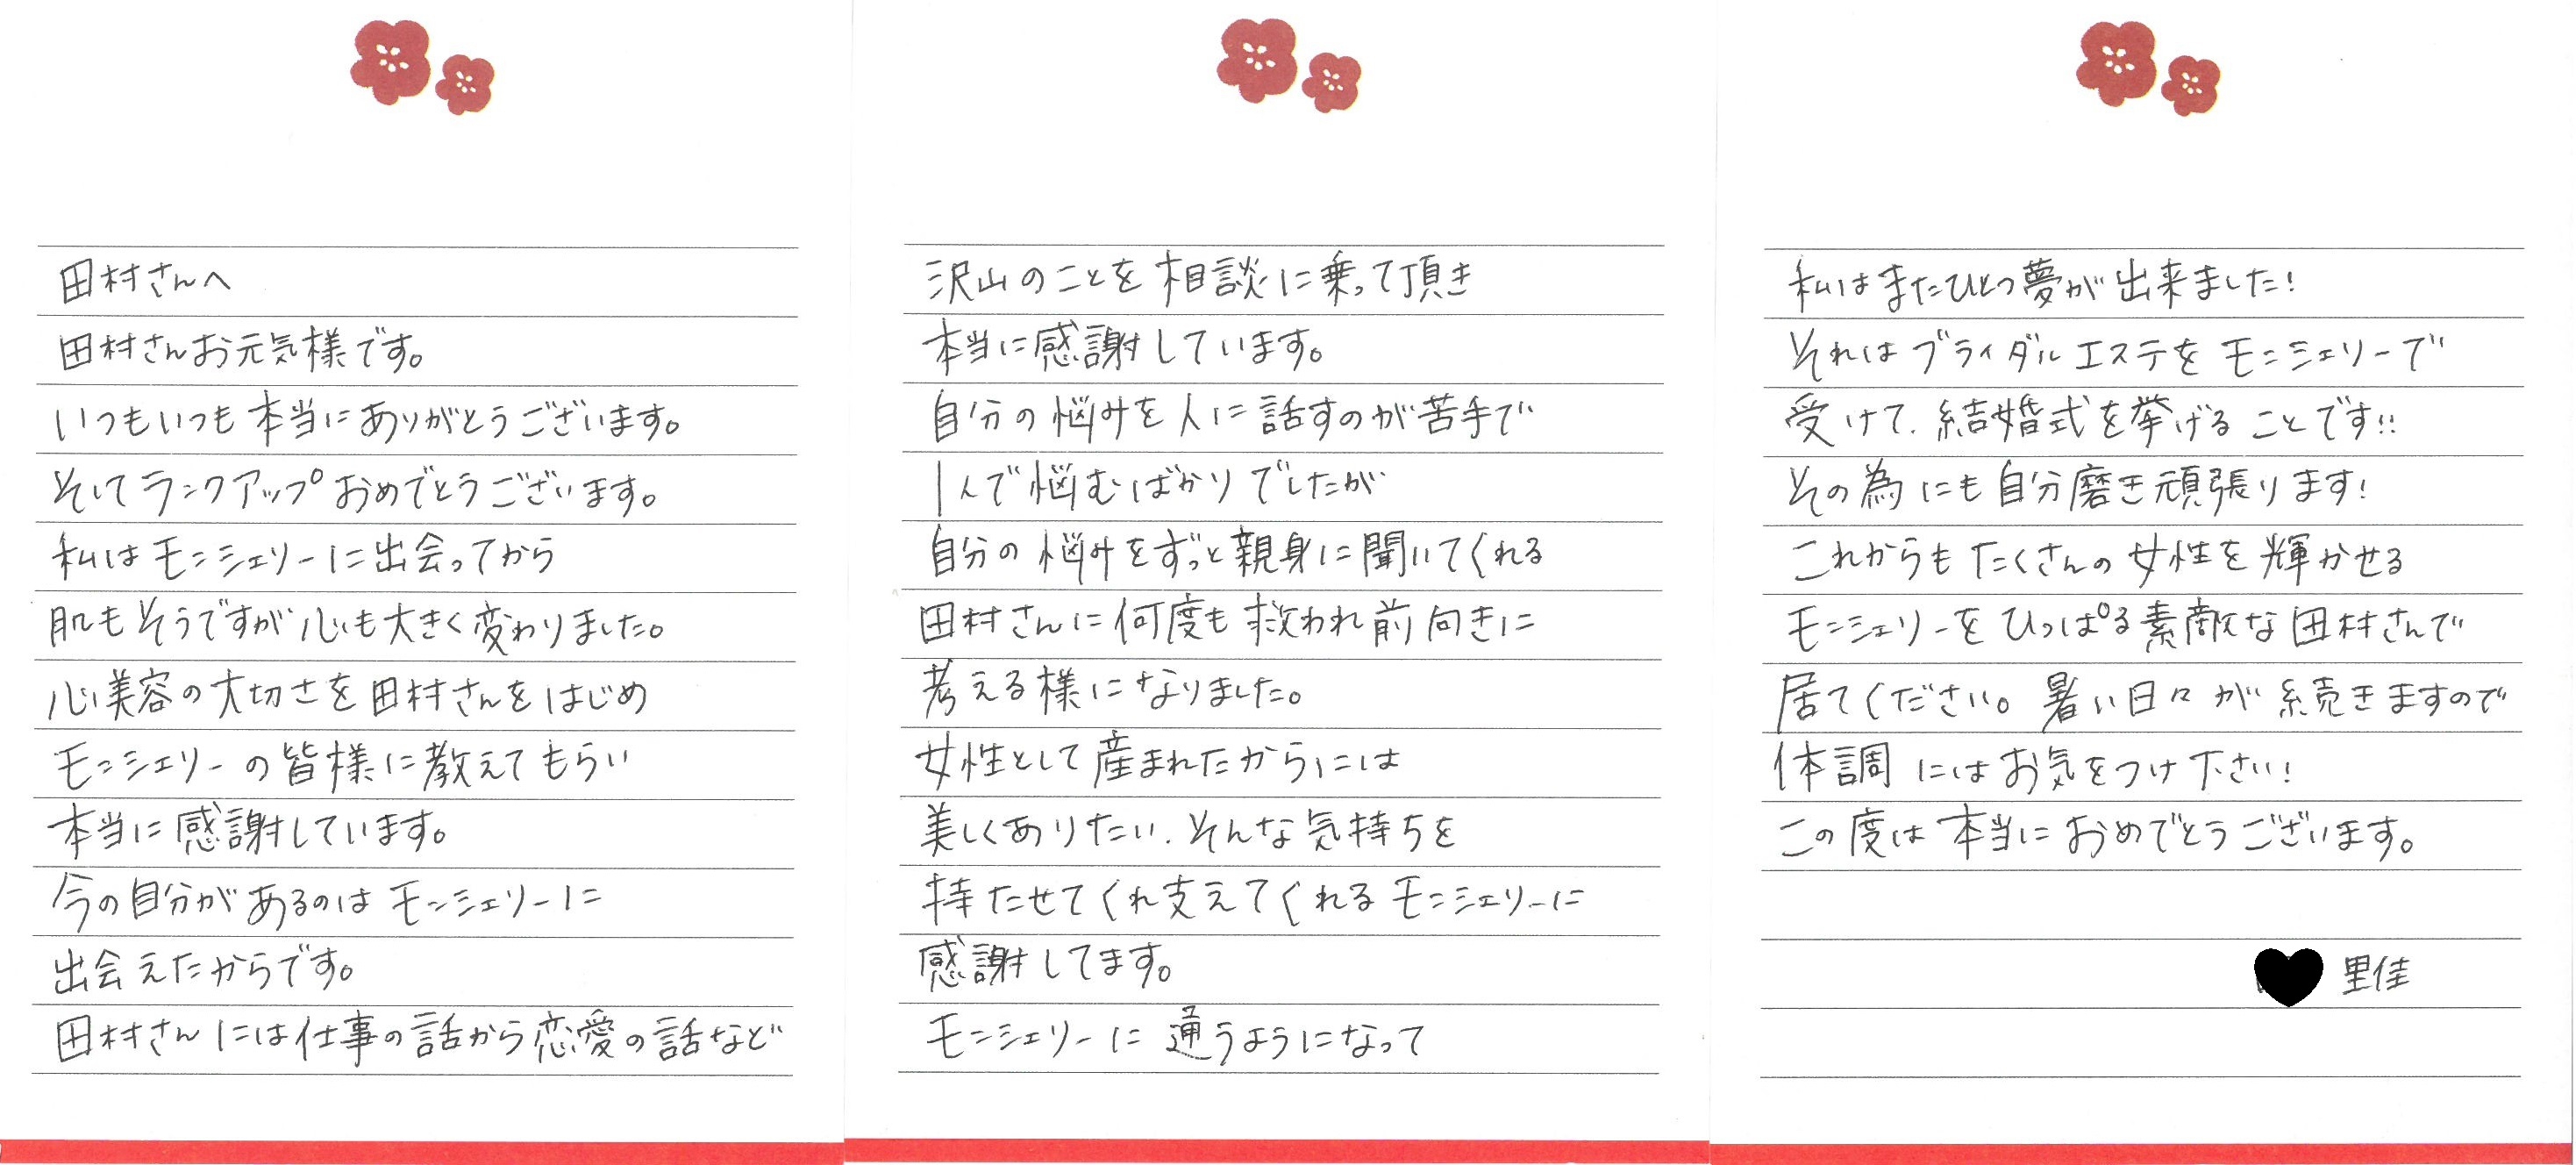 田村さんへ
田村さんお元気様です。
いつもいつも本当にありがとうございます。
そしてランクアップおめでとうございます。
私はモンシェリーに出会ってから
肌もそうですが心も大きく変わりました。
心美容の大切さを田村さんをはじめ
モンシェリーの皆様に教えてもらい
本当に感謝しています。
今の自分があるのはモンシェリーに
出会えたからです。
田村さんには仕事の話から恋愛の話など
沢山のことを相談に乗って頂き
本当に感謝しています。
自分の悩みを人に話すのが苦手で
1人で悩むばかりでしたが
自分の悩みをずっと親身に聞いてくれる
田村さんに何度も救われ前向きに
考える様になりました。
女性として産まれたからには
美しくありたい、そんな気持ちを
持たせてくれ支えてくれるモンシェリーに
感謝してます。
モンシェリーに通うようになって
私はまたひとつ夢が出来ました!
それはブライダルエステをモンシェリーで
受けて、結婚式を挙げることです!!
その為にも自分磨き頑張ります!
これからもたくさんの女性を輝かせる
モンシェリーをひっぱる素敵な田村さんで
居てください。暑い日々が続きますので
体調にはお気をつけ下さい!
この度は本当におめでとうございます。
里佳